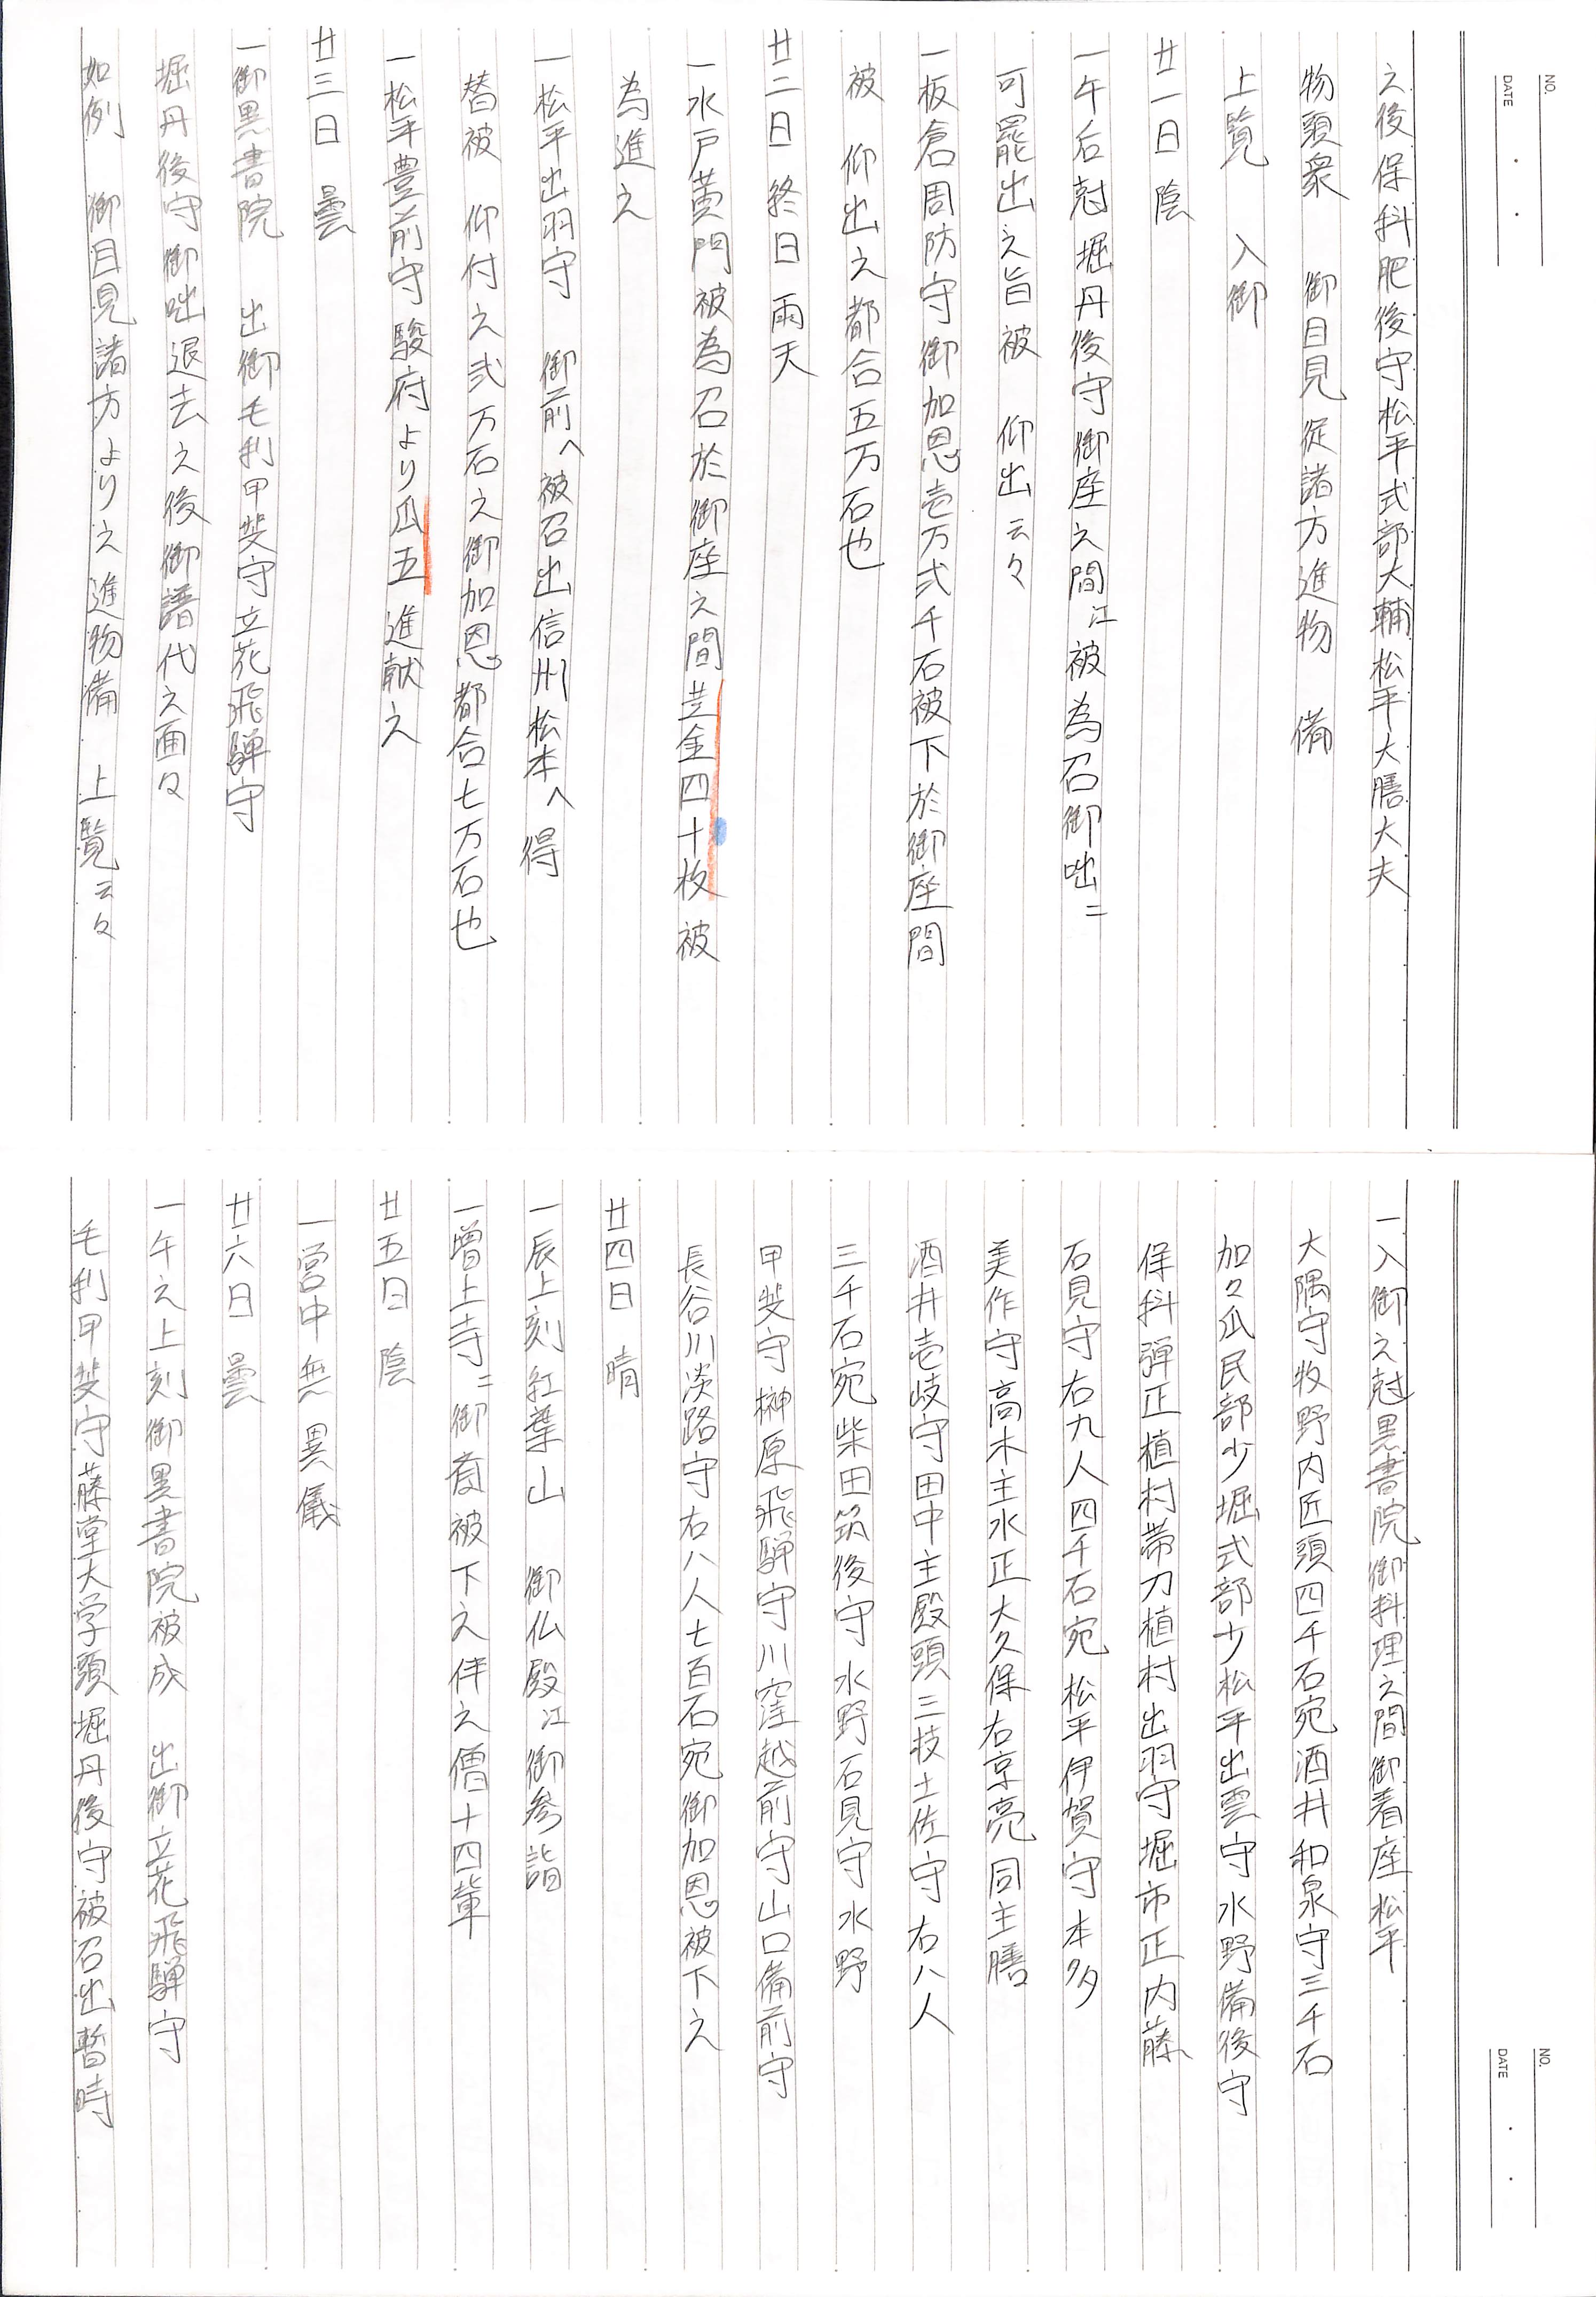 NO.
DATE ・ ・
之後保科肥後守松平式部大輔松平大膳大夫
物頭衆 御目見従諸方進物 備
上覧 入御
廿一日 陰
一午后尅堀丹後守御座之間江被為召御咄ニ
可罷出之旨被 仰出云々
一板倉周防守御加恩壱万弐千石被下於御座間
被 仰出之都合五万石也
廿二日 終日雨天
一水戸黄門被為召於御座之間芝金四十枚被
為進之
一松平出羽守 御前へ被召出信州松本へ得
替被 仰付之弐万石之御加恩都合七万石也
一松平豊前守駿府より瓜五進献之
廿三日 曇
一御黒書院 出御毛利甲斐守立花飛騨守
堀丹後守御咄退去之後御譜代之面々
如例 御目見諸方より之進物備 上覧云々
NO.
DATE ・ ・
一入御之尅黒書院御料理之間御着座松平
大隅守牧野内匠頭四千石宛酒井和泉守三千石
加々爪民部少堀式部少松平出雲守水野備後守
保科弾正植村帯刀植村出羽守堀市正内藤
石見守右九人四千石宛松平伊賀守本多
美作守高木主水正大久保右京亮同主膳
酒井壱岐守田中主殿頭三枝土佐守右八人
三千石宛柴田筑後守水野石見守水野
甲斐守榊原飛騨守川窪越前守山口備前守
長谷川淡路守右八人七百石宛御加恩被下之
廿四日 晴
一辰上刻紅葉山 御仏殿江御参詣
一増上寺ニ御斎被下之伴之僧十四輩
廿五日 陰
一営中無異儀
廿六日 曇
一午之上刻御黒書院被成 出御立花飛騨守
毛利甲斐守藤堂大学頭堀丹後守被召出暫時